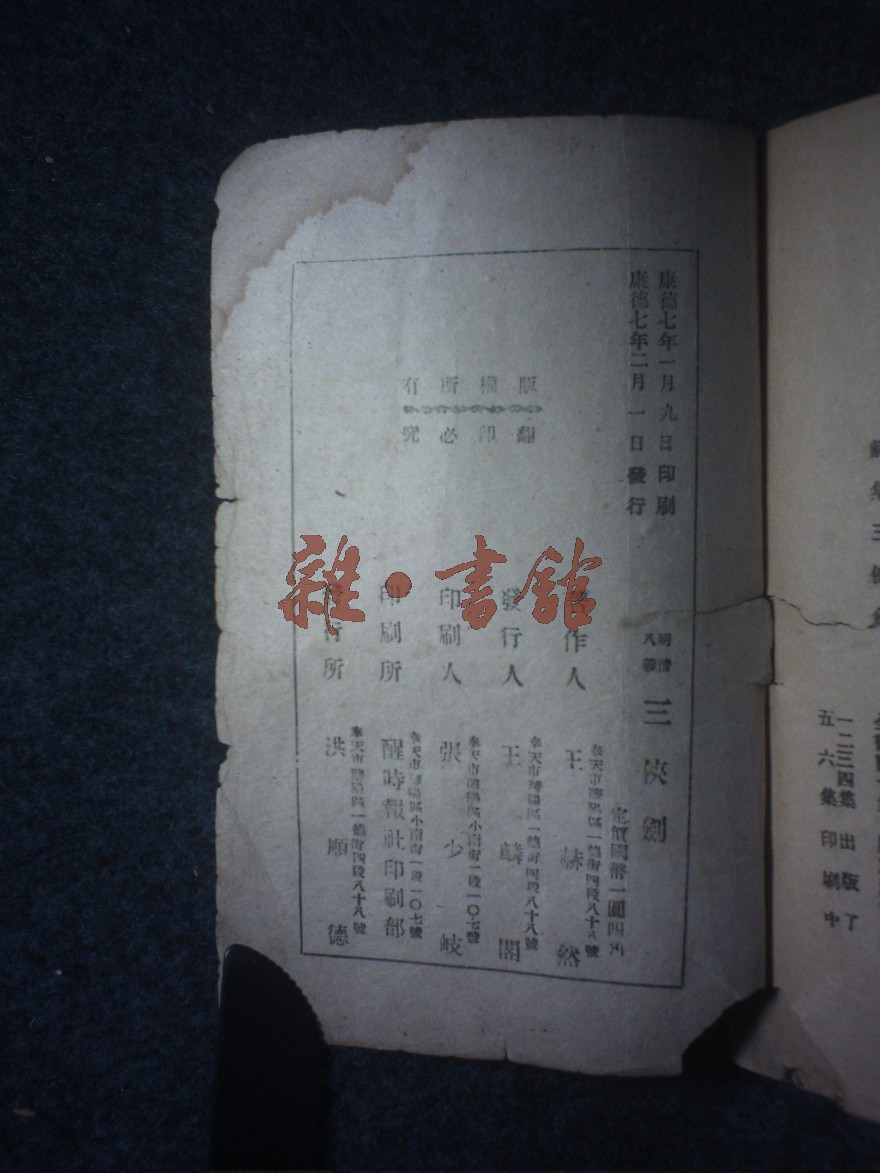 康德七年一月九日印刷
康德七年二月一日發行
版權所有
翻印必究
明清
八義
三俠劍
定價國幣一圓四角
著作人
王赫然
奉天市瀋陽區一緯街四段八十八號
發行人
奉天市瀋陽區一緯街四段八十八號
印刷人
張少岐
奉天市瀋陽區小南街一段一〇七號
印刷所
醒時報社印刷部
奉天市瀋陽區小南街一段一〇七號
發行所
洪順德
奉天市瀋陽區一緯街四段八十八號
雜·書館
一二三四集出版了
五六集印刷中